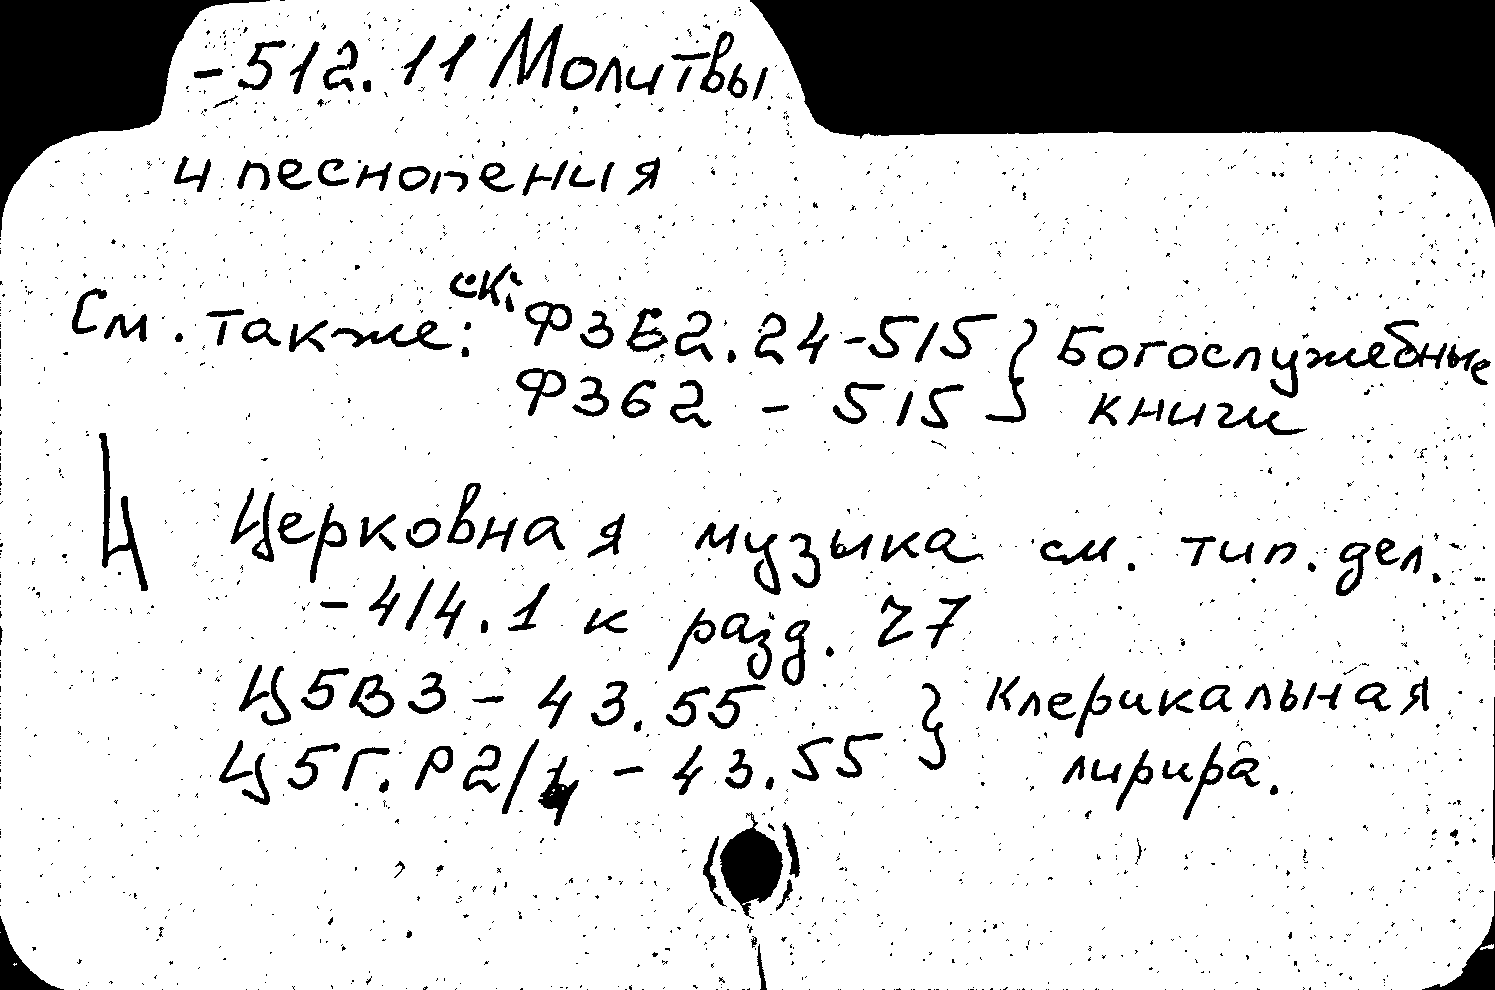 -512.11 Молитвы
и песнопения
ск:
См. также: Ф3Б2.24-515 } Богослужебные
Ф362 - 515 } книги
Ц Церковная музыка см. тип. дел.
-414.1 к разд. 27
Ц5В3 - 43.55 } Клерикальная
Ц5Г.Р2/4 - 43.55 } лирира.